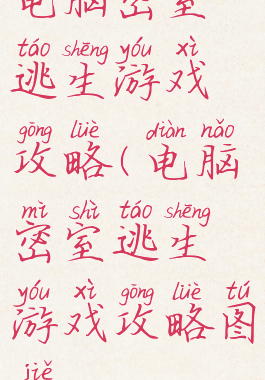 电脑密室
táo shēng yóu xì
逃生游戏
gōng lüè diàn nǎo
攻略(电脑
mì shì táo shēng
密室逃生
yóu xì gōng lüè tú
游戏攻略图
jiě